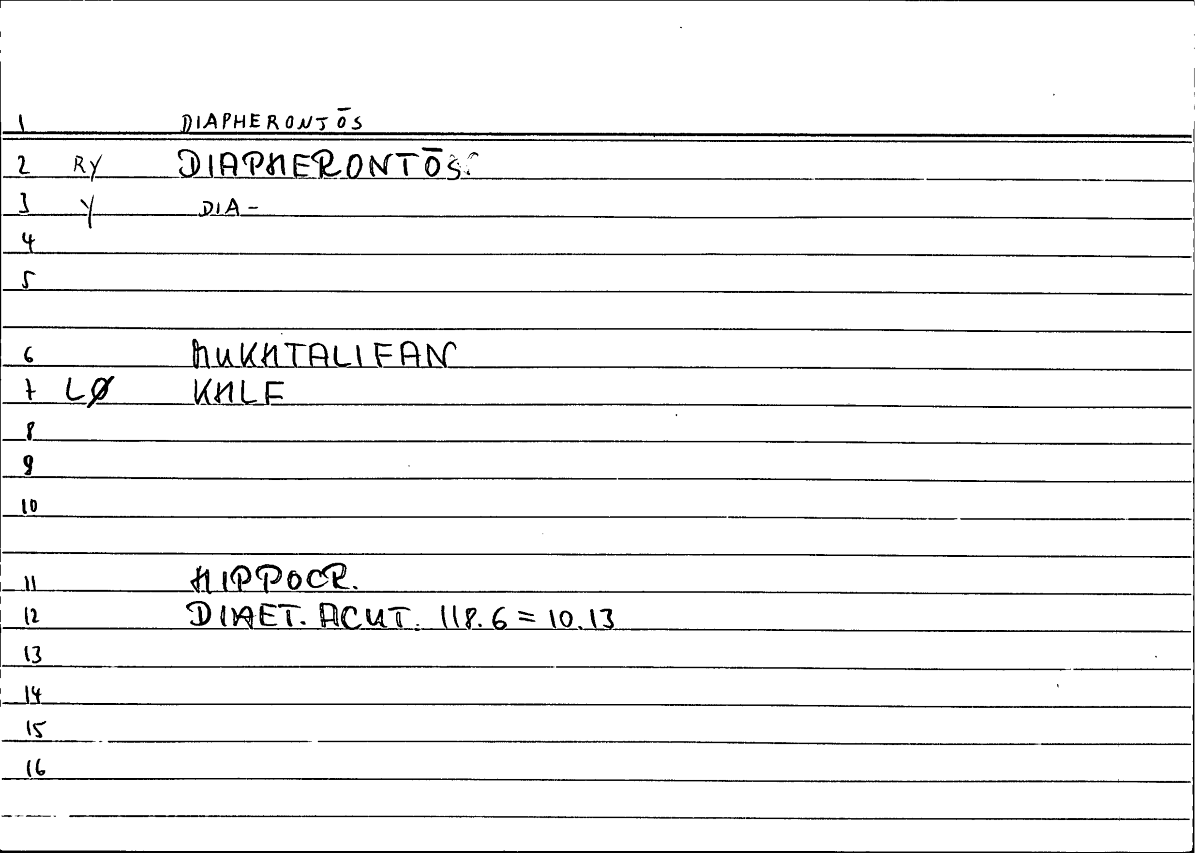 1 DIAPHERONTŌS
2 RY DIAPHERONTŌS
3 Y DIA-
4
5
6 MUKHTALIFAN
7 LØ KHLF
8
9
10
11 HIPPOCR.
12 DIAET. ACUT. 118.6 = 10.13
13
14
15
16